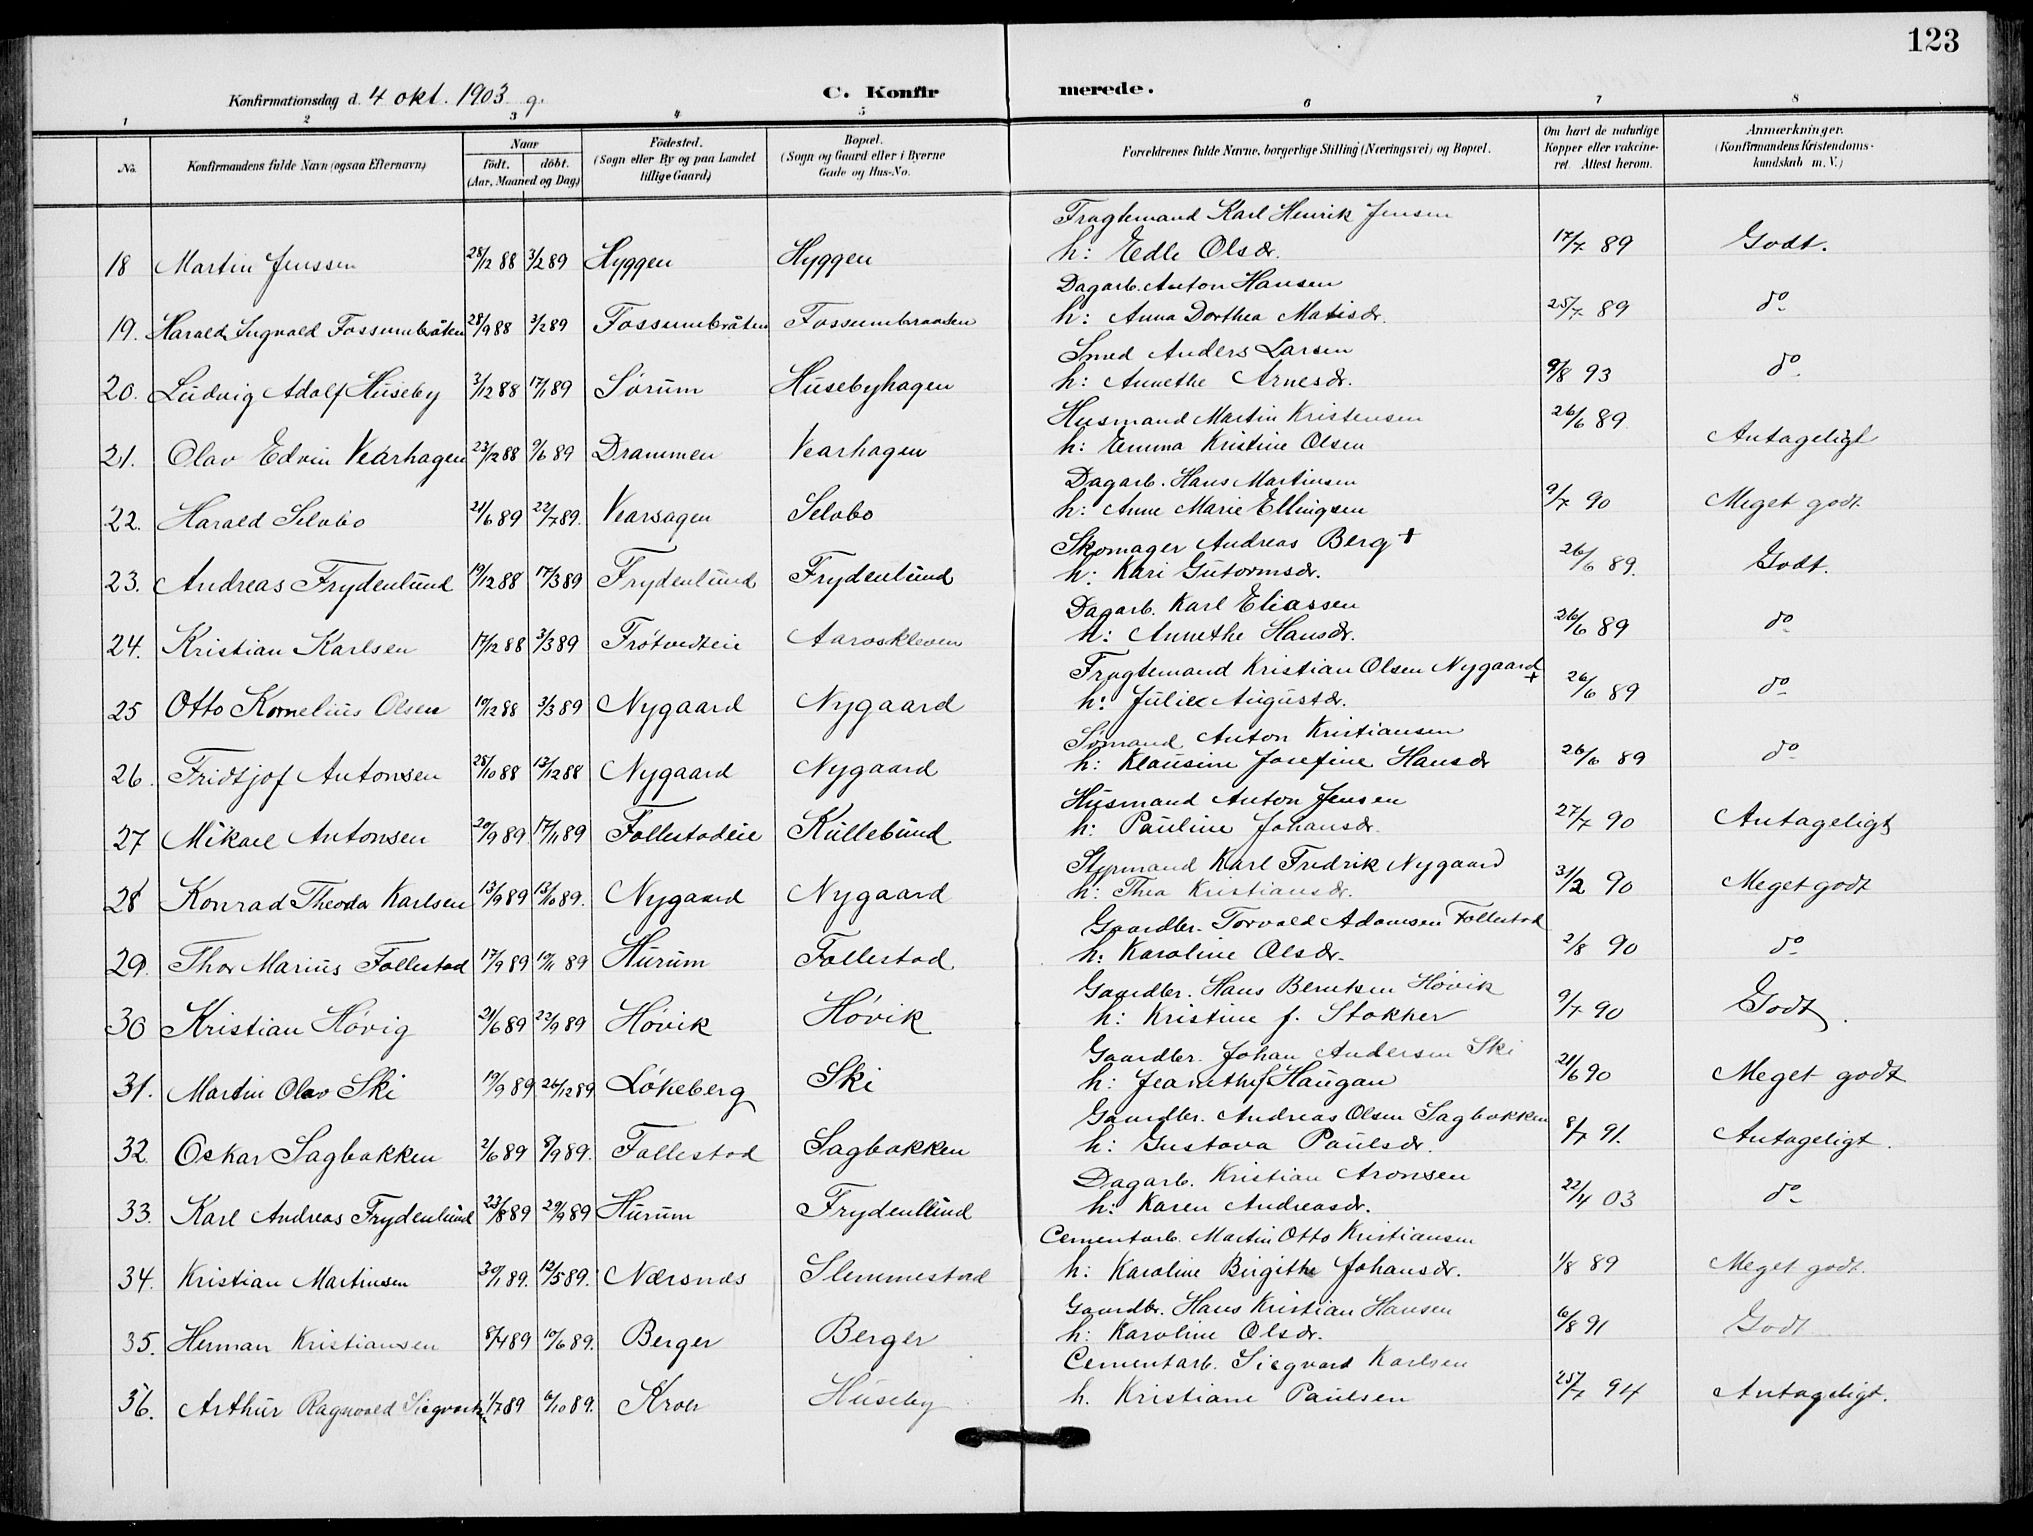 123
Konfirmationsdag d. 4 okt. 1903 g. C. Konfirmerede.
1 2 3 4 5 6 7 8
No. Konfirmandens fulde Navn (ogsaa Efternavn) Naar födt. döbt. (Aar, Maaned og Dag) Födested. (Sogn eller By og paa Landet tillige Gaard) Bopæl. (Sogn og Gaard eller i Byerne Gade og Hus-No. Forældrenes fulde Navne, borgerlige Stilling (Næringsvei) og Bopæl. Om havt de naturlige Kopper eller vaccineret. Attest herom. Anmærkninger. (Konfirmandens Kristendomskundskab m. V.)
Fragtemand Karl Henrik Jensen
18 Martin Jenssen 28/12 88 3/2 89 Hyggen Hyggen h: Edle Olsdr. 17/7 89 Godt.
Dagarb. Anton Hansen
19. Harald Ingvald Fossumbråten 28/9 88 3/2 89 Fossumbråten Fossumbraaten h: Anna Dorthea Matisdr. 25/7 89 do
Smed Anders Larsen
20. Ludvig Adolf Huseby 3/12 88 17/1 89 Sörum Husebyhagen h: Annethe Arnesdr. 9/8 93 do
Husmand Martin Kristensen
21. Olav Edvin Vearhagen 23/12 88 9/6 89 Drammen Vearhagen h: Emma Kristine Olsen 26/6 89. Antageligt
Dagarb. Hans Martinsen
22. Harald Selvbo 21/6 89 22/7 89. Vearsagen Selvbo h: Anne Marie Ellingsen 9/7 90 Meget godt.
Skomager Andreas Berg +
23. Andreas Frydenlund 19/12 88 17/3 89 Frydenlund Frydenlund h: Kari Gutormsdr. 26/6 89. Godt.
Dagarb. Karl Eliassen
24. Kristian Karlsen 17/12 88 3/3 89 Frötvedteie Aaroskleven h: Annethe Hansdr. 26/6 89 do
Fragtemand Kristian Olsen Nygaard +
25 Otto Kornelius Olsen 10/12 88 3/3 89 Nygaard Nygaard h: Julie Augustdr. 26/6 89 do
Sömand Anton Kristiansen
26. Fridtjof Antonsen 28/10 88 13/12 88 Nygaard Nygaard h: Klausine Josefine Hansdr 26/6 89 do
Husmand Anton Jensen
27 Mikael Antonsen 20/9 89 17/11 89 Follestadeie Kullebund h: Pauline Johansdr. 27/7 90 Antageligt
Styrmand Karl Fredrik Nygaard
28 Konrad Theodor Karlsen 13/9 89 13/10 89. Nygaard Nygaard h: Thea Kristiansdr. 31/2 90 Meget godt
Gaardbr. Torvald Adamsen Follestad
29. Thor Marius Follestad 17/9 89 10/11 89 Hurum Follestad h: Karoline Olsdr. 2/8 90 do
Gaardbr. Hans Berntsen Hövik
30 Kristian Hövig 21/6 89 22/9 89 Hövik Hövik h: Kristine f. Stokker 9/7 90 Godt.
Gaardbr. Johan Andersen Ski
31. Martin Olav Ski 19/9 89 26/12 89 Lökeberg Ski h: Jeanethe f Haugan 21/6 90 Meget godt
Gaardbr. Andreas Olsen Sagbakken
32. Oskar Sagbakken 2/6 89 8/9 89. Follestad Sagbakken h: Gustava Paulsdr. 8/7 91. Antageligt.
Dagarb. Kristian Aronsen
33. Karl Andreas Frydenlund 23/8 89 29/9 89 Hurum Frydenlund h: Karen Andreasdr. 22/4 03 do
Cementarb. Martin Otto Kristiansen
34. Kristian Martinsen 30/1 89. 12/5 89. Nærsnes Slemmestad h: Karoline Birgithe Johansdr. 1/8 89 Meget godt.
Gaardbr. Hans Kristian Hansen
35. Herman Kristiansen 8/4 89 10/6 89. Berger Berger h: Karoline Olsdr. 6/8 91 Godt
Cementarb. Siegvard Karlsen
36. Arthur Ragnvald 1/7 89 6/10 89. Huseby h. Kristiane Paulsen 25/7 94 Antageligt.